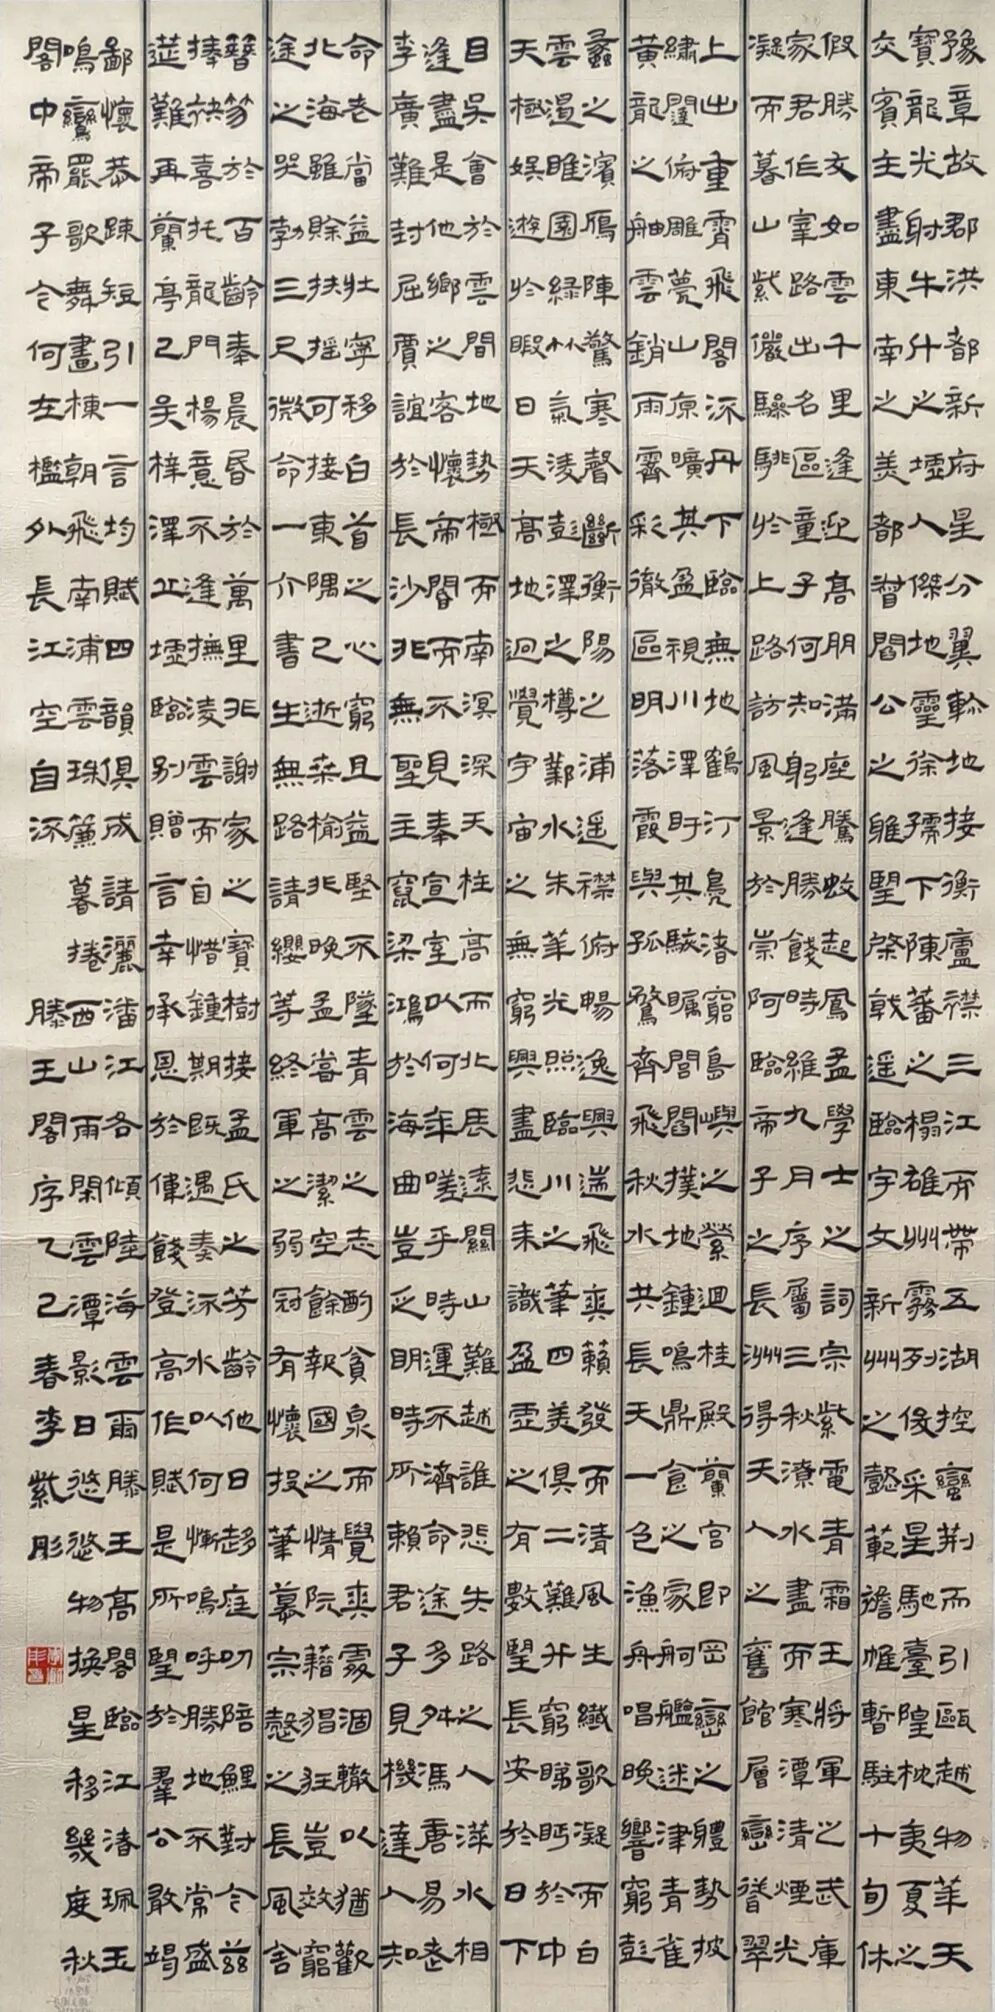 豫章故郡洪都新府星分翼軫地接衡廬襟三江而帶五湖控蠻荊而引甌越物華天
寶龍光射牛斗之墟人傑地靈徐孺下陳蕃之榻雄州霧列俊采星馳臺隍枕夷夏之
交賓主盡東南之美都督閻公之雅望棨戟遙臨宇文新州之懿範襜帷暫駐十旬休
假勝友如雲千里逢迎高朋滿座騰蛟起鳳孟學士之詞宗紫電青霜王將軍之武庫
家君作宰路出名區童子何知躬逢勝餞時維九月序屬三秋潦水盡而寒潭清煙光
凝而暮山紫儼驂騑於上路訪風景於崇阿臨帝子之長洲得天人之舊館層巒聳翠
上出重霄飛閣流丹下臨無地鶴汀鳧渚窮島嶼之縈迴桂殿蘭宮即岡巒之體勢披
繡闥俯雕甍山原曠其盈視川澤盱其駭矚閭閻撲地鍾鳴鼎食之家舸艦迷津青雀
黃龍之舳雲銷雨霽彩徹區明落霞與孤鶩齊飛秋水共長天一色漁舟唱晚響窮彭
蠡之濱雁陣驚寒聲斷衡陽之浦遙襟俯暢逸興遄飛爽籟發而清風生纖歌凝而白
雲遏睢園綠竹氣淩彭澤之樽鄴水朱華光照臨川之筆四美俱二難并窮睇眄於中
天極娛遊於暇日天高地迥覺宇宙之無窮興盡悲來識盈虛之有數望長安於日下
目吳會於雲間地勢極而南溟深天柱高而北辰遠關山難越誰悲失路之人萍水相
逢盡是他鄉之客懷帝閽而不見奉宣室以何年嗟乎時運不濟命途多舛馮唐易老
李廣難封屈賈誼於長沙非無聖主竄梁鴻於海曲豈乏明時所賴君子見機達人知
命老當益壯寧移白首之心窮且益堅不墜青雲之志酌貪泉而覺爽處涸轍以猶歡
北海雖賒扶搖可接東隅已逝桑榆非晚孟嘗高潔空餘報國之情阮籍猖狂豈效窮
途之哭勃三尺微命一介書生無路請纓等終軍之弱冠有懷投筆慕宗愨之長風舍
簪笏於百齡奉晨昏於萬里非謝家之寶樹接孟氏之芳齡他日趨庭叨陪鯉對今茲
捧袂喜托龍門楊意不逢撫淩雲而自惜鍾期既遇奏流水以何慚嗚呼勝地不常盛
筵難再蘭亭已矣梓澤丘墟臨別贈言幸承恩於偉餞登高作賦是所望於羣公敢竭
鄙懷恭疎短引一言均賦四韻俱成請灑潘江各傾陸海雲爾滕王高閣臨江渚珮玉
鳴鸞罷歌舞畫棟朝飛南浦雲珠簾暮捲西山雨閑雲潭影日悠悠物換星移幾度秋
閣中帝子今何在檻外長江空自流 滕王閣序乙巳春李紫彤